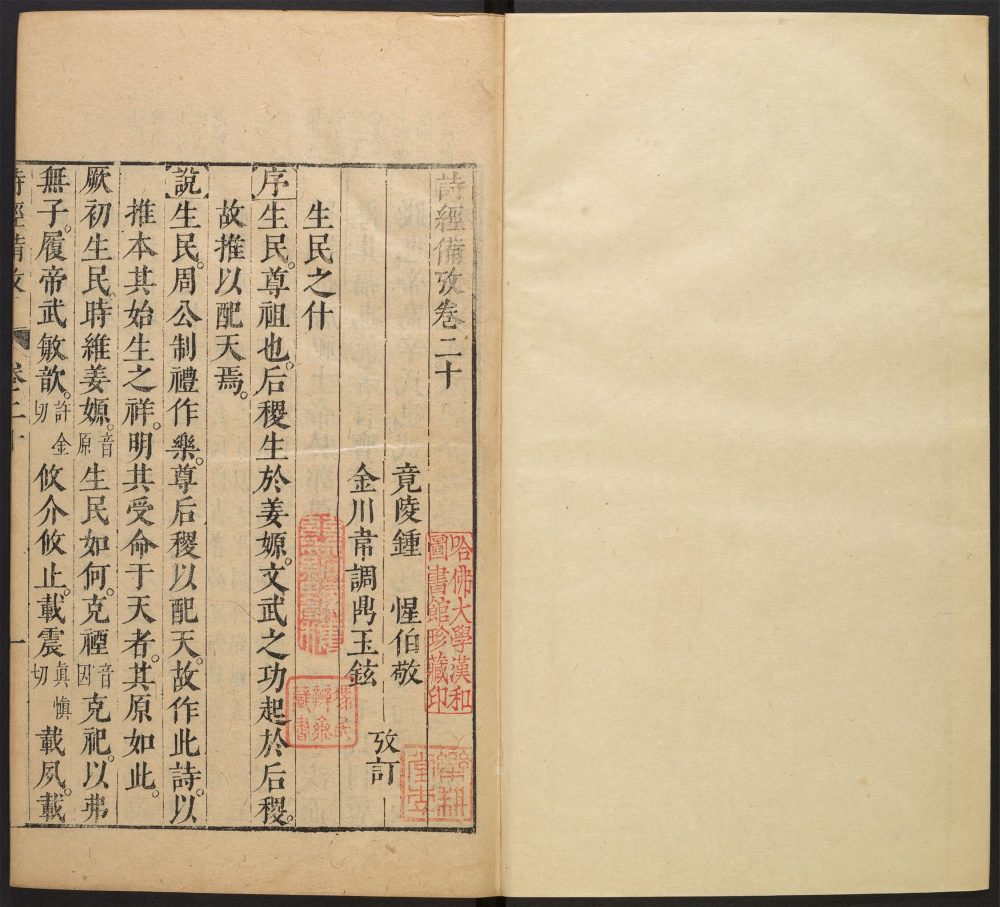 詩經備攷卷二十
竟陵鍾惺伯敬
金川韋調鼎玉鉉
攷訂
生民之什
序生民。尊祖也。后稷生於姜嫄。文武之功起於后稷。
故推以配天焉。
說生民。周公制禮作樂。尊后稷以配天。故作此詩。以
推本其始生之祥。明其受命于天者。其原如此。
厥初生民。時維姜嫄。音原生民如何。克禋音因克祀。以弗
無子。履帝武敏歆。許金切攸介攸止。載震真慎切載夙。載
詩經備攷 卷二十 一
哈佛大學漢和
圖書館珍藏印